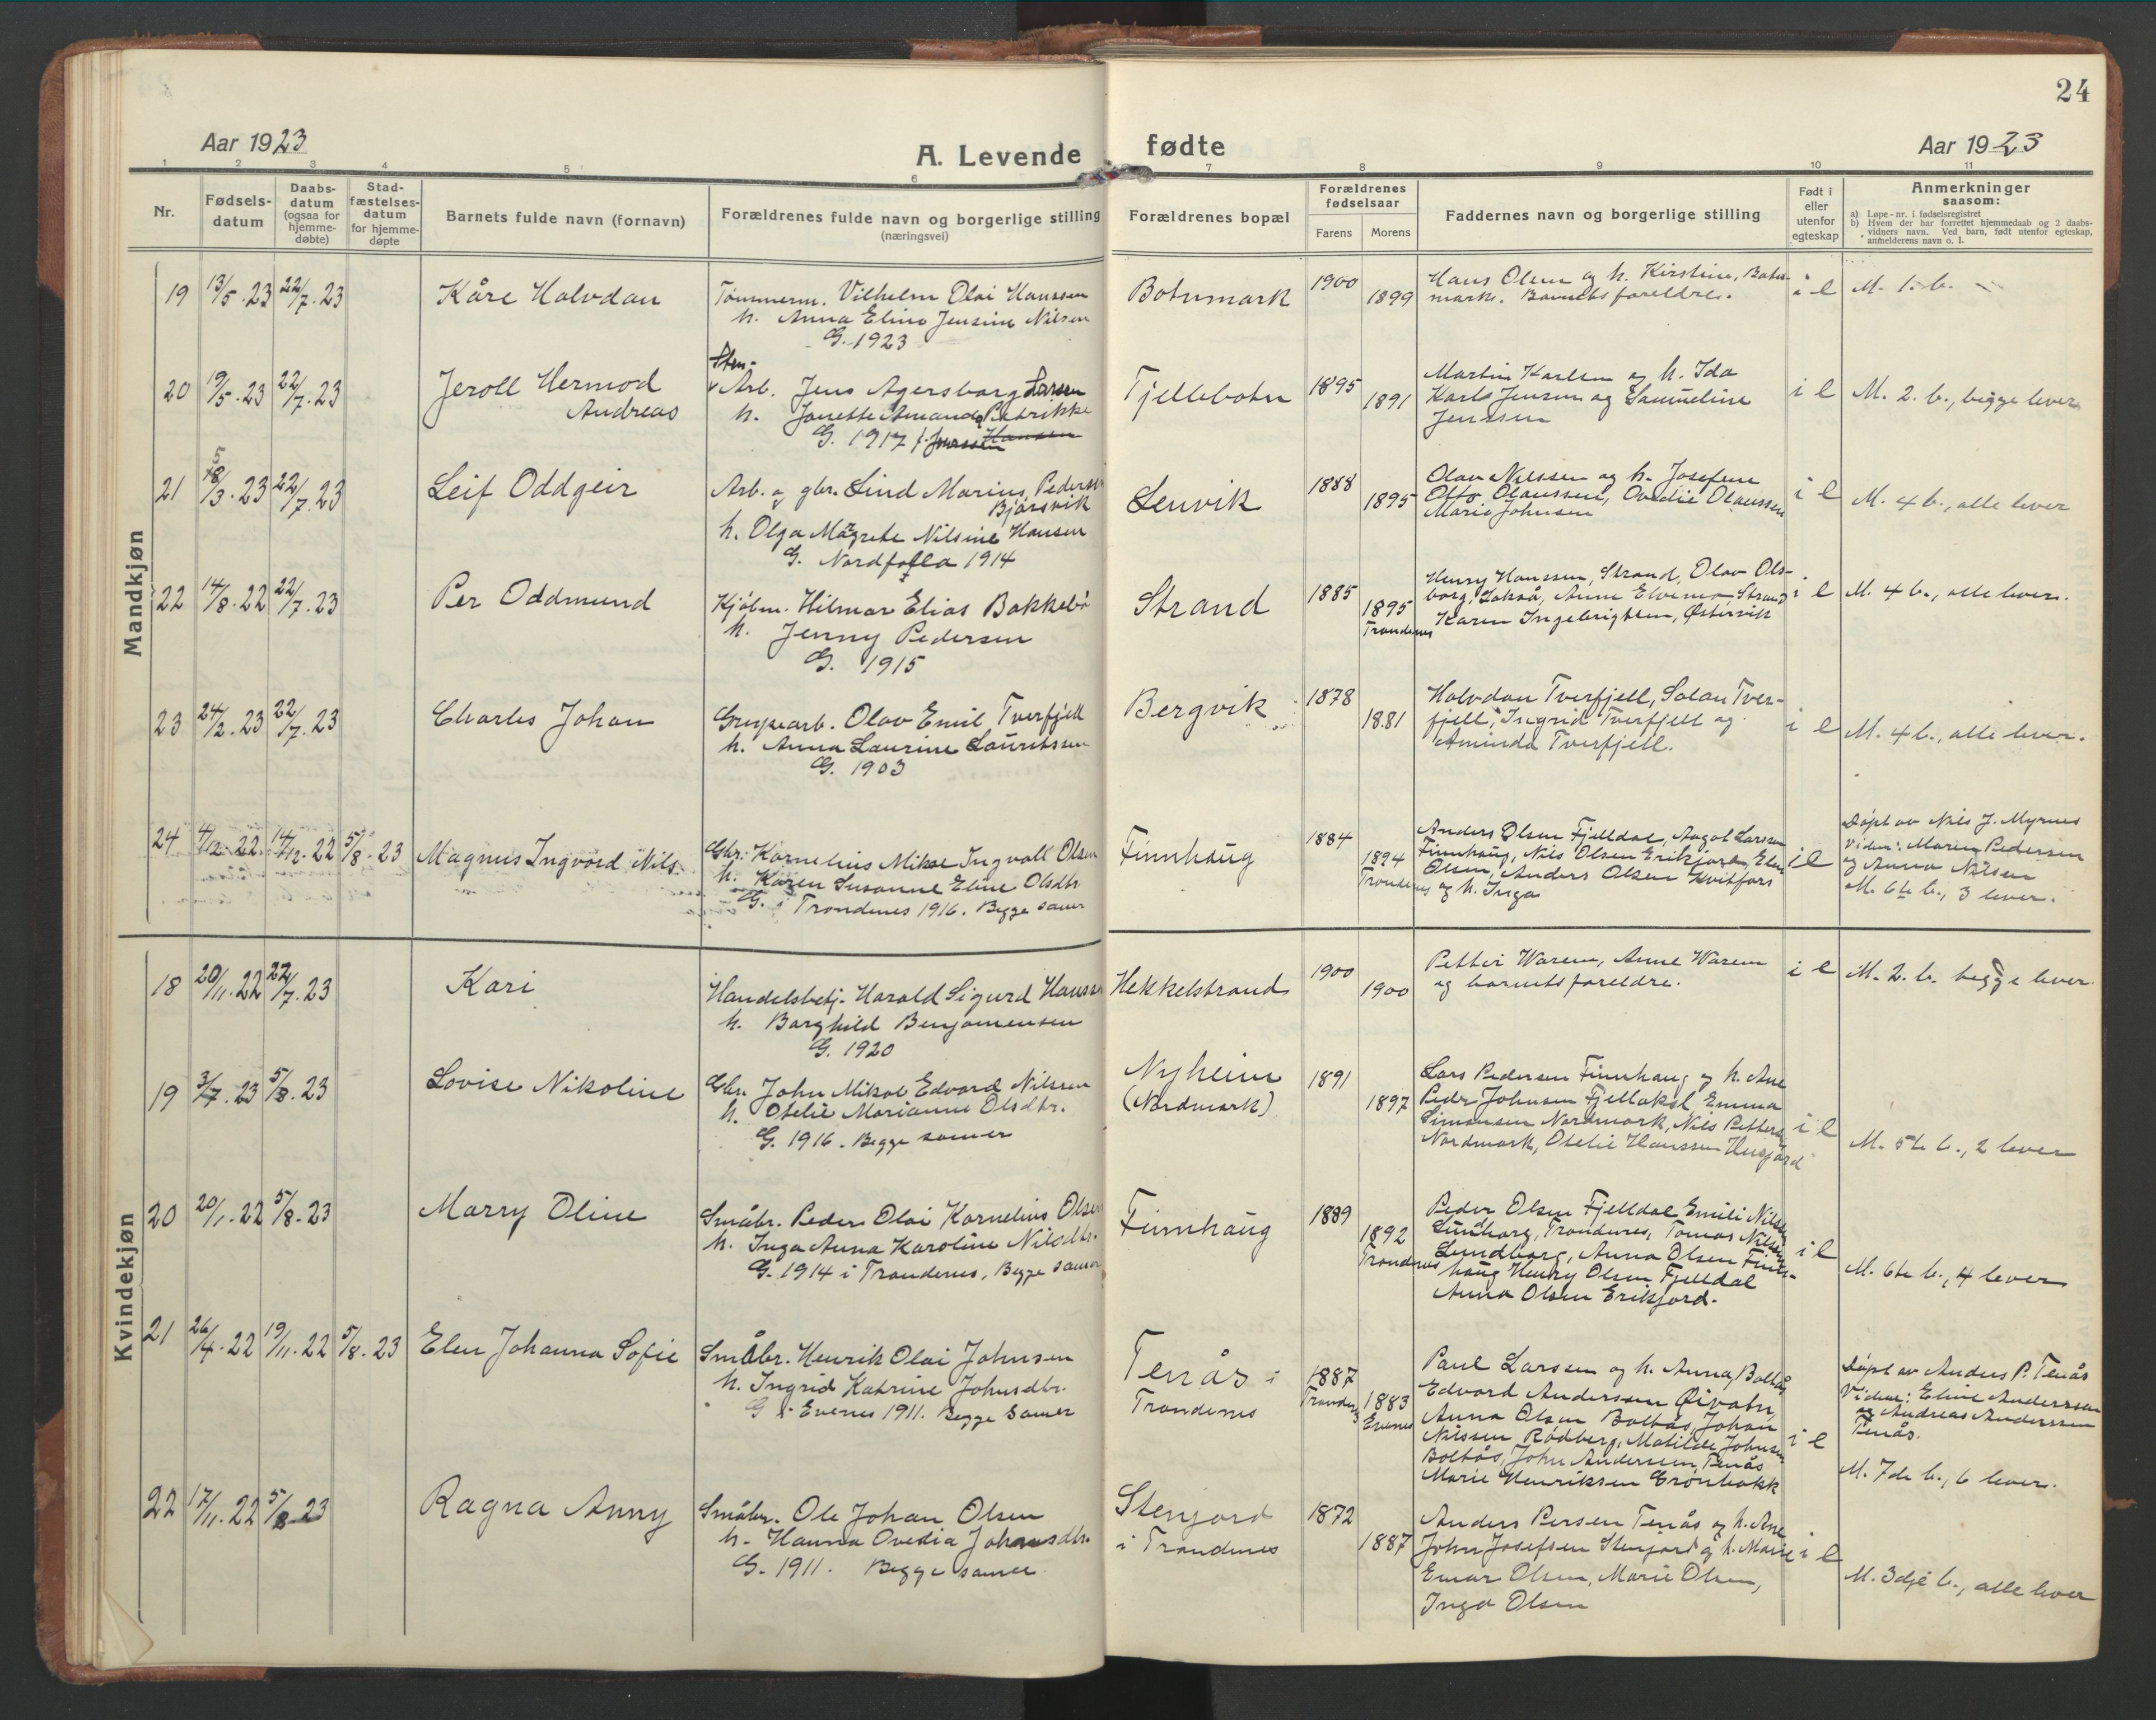 24
Aar 1923
A. Levende fødte
Aar 1923
1 2 3 4 5 6 7 8 9 10 11
Nr.
Fødsels-
datum
Daabs-
datum
(ogsaa for
hjemme-
døbte)
Stad-
fæstelses-
datum
for hjemme-
døpte
Barnets fulde navn (fornavn)
Forældrenes fulde navn og borgerlige stilling
(næringsvei)
Forældrenes bopæl
Forældrenes
fødselsaar
Farens Morens
Faddernes navn og borgerlige stilling
Født i
eller
utenfor
egteskap
Anmerkninger
saasom:
a) Løpe-nr. i fødselsregistret
b) Hvem der har forrettet hjemmedaab og 2 daabs-
vidners navn. Ved barn, født utenfor egteskap,
anmelderens navn o. l.
Mandkjøn
19 13/5.23 22/7.23
Kåre Halvdan
Tømmerm. Vilhelm Olai Hanssen
h. Anna Elino Jensine Nilsen
G. 1923
Botnmark
1900
1899
Hans Olsen og h. Kirstine, Botn-
mark. Barnets foreldre.
i e
M. 1. b.
20 19/5.23 22/7.23
Jeroll Hermod
Andreas
Arb. Jens Agersborg Larsen
h. Janette Amanda Petrikke
G. 1917 f. Jenssen Hansen
Tjellebotn
1895
1891
Martin Karlsen og h. Ida
Karl Jensen og Samueline
Jenssen
i e
M. 2. b., begge lever
21 18/3.23 22/7.23
5
Leif Oddgeir
Arb. og gbr. Lind Marius Pedersen
Bjørsvik
h. Olga Magrete Nilsine Hansen
G. Nordfolla 1914
Lenvik
1888
1895
Olav Nilssen og h. Josefine
Otto Olaussen, Ovedie Olaussen
Marie Johnsen
i e
M. 4 b., alle lever
22 14/8.22 22/7.23
Per Oddmund
Kjøbm. Hilmar Elias Bakkebø
h. Jenny Pedersen
G. 1915
Strand
1885
1895
Trondenes
Henry Hanssen, Strand, Olav Ols-
borg, Lakså, Anne Elvemo Strand
Karen Ingebrigtsen, Østervik
i e
M. 4 b., alle lever.
23 24/2.23 22/7.23
Charles Johan
Gruvearb. Olav Emil Tverfjell
h. Anna Laurine Lauritssen
G. 1903
Bergvik
1878
1881
Halvdan Tverfjell, Salan Tver-
fjell, Ingrid Tverfjell og
Aminda Tverfjell.
i e
M. 4 b., alle lever.
24 4/12.22 14/12.22 5/8.23
Magnus Ingvard Nils
Gbr. Kornelius Mikal Ingvall Olsen
h. Karen Susanne Eline Olsdtr.
G. i Trondenes 1916. Begge samer
Finnhaug
1884
1894
Trondenes
Anders Olsen Fjelldal, Aagot Larsen
Finnhaug, Nils Olsen Erikjord, Elen
Olsen, Anders Olsen Kvitfors
og h. Inga
i e
Døpt av Nils J. Myrnes
Vidner: Maren Pedersen
og Anna Nilsen
M. 6te b., 3 lever.
Kvindekjøn
18 20/11.22 22/7.23
Kari
Handelsbetj. Harald Sigurd Hanssen
h. Borghild Benjamensen
G. 1920
Hekkelstrand
1900
1900
Petter Warem, Anne Warem
og barnets foreldre.
i e
M. 2. b. begge lever.
19 3/7.23 5/8.23
Lovise Nikoline
Gbr. John Mikal Edvard Nilssen
h. Otelie Marianne Olsdtr.
G. 1916. Begge samer
Nyheim
(Nordmark)
1891
1897
Lars Pedersen Finnhaug og h. Ane
Peder Johnsen Fjellaksl, Emma
Simonsen Nordmark, Nils Petters.
Nordmark, Otelie Hanssen Husjord
i e
M. 5te b., 2 lever
20 20/1.22 5/8.23
Marry Oline
Småbr. Peder Olai Kornelius Olsen
h. Inga Anna Karoline Nilsdtr.
G. 1914 i Trondenes. Begge samer
Finnhaug
1889
1892
Trondenes
Peder Olsen Fjelldal Emili Nilsen
Lundborg, Trondenes, Tomas Nilsen
Lundborg, Anna Olsen Finn-
haug Henry Olsen Fjelldal
Anna Olsen Erikjord.
i e
M. 6te b., 4 lever
21 26/4.22 19/11.22 5/8.23
Elen Johanna Sofie
Småbr. Henrik Olai Johnsen
h. Ingrid Katrine Johnsdtr.
G. i Evenes 1911. Begge samer
Tenås i
Trondenes
1887
Trondenes
1883
Evenes
Paul Larssen og h. Anna, Boltås
Edvard Anderssen Øivatn,
Anna Olsen Boltås, Johan
Nilssen Rødberg, Matilde Johnsen
Boltås, John Anderssen, Tenås
Marie Henriksen Grønbakk
i e
Døpt av Anders P. Tenås
Vidner: Eline Anderssen
og Andreas Anderssen
Tenås.
M. 7de b., 6 lever.
22 17/11.22 5/8.23
Ragna Anny
Småbr. Ole Johan Olsen
h. Hanna Ovedia Johansdtr.
G. 1911. Begge samer
Stenjord
i Trondenes
1872
1887
Anders Persen Tenås og h. Ane
John Josefsen Stenjord og h. Marie
Einar Olsen, Marie Olsen,
Inga Olsen
i e
M. 3dje b., alle lever